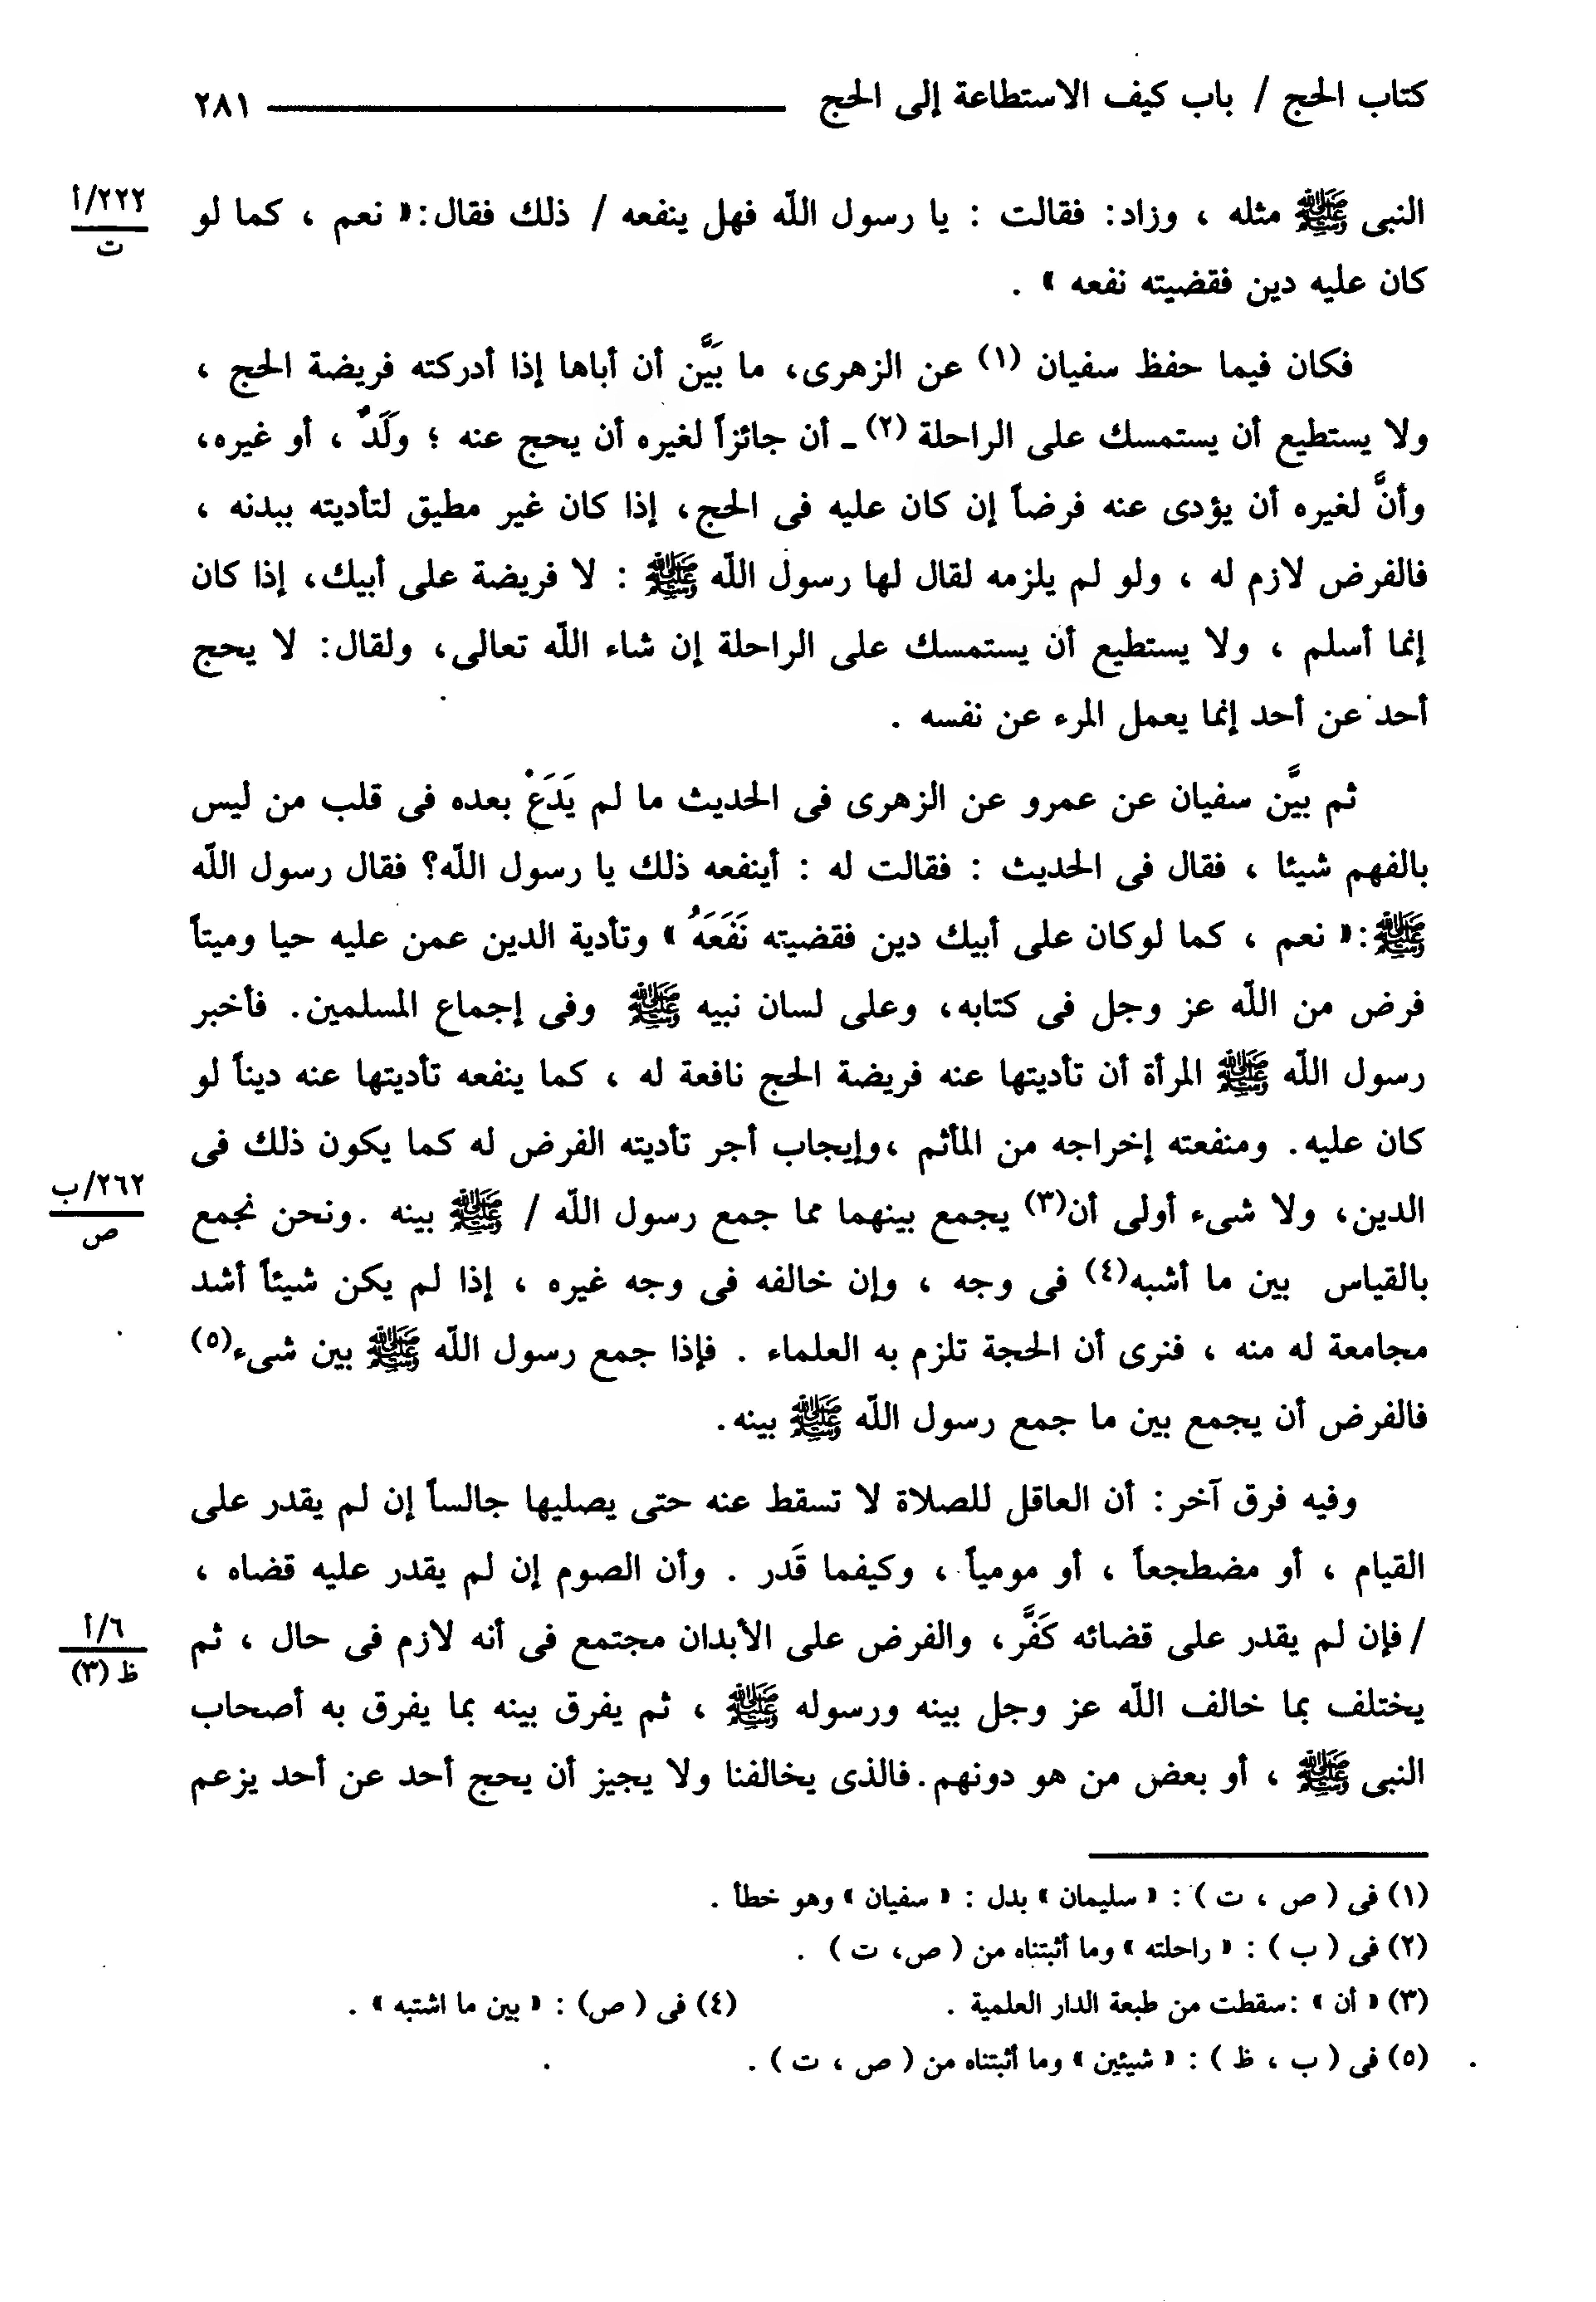 كتاب الحج / باب كيف الاستطاعة إلى الحج ٢٨١
النبى ﷺ مثله ، وزاد: فقالت : يا رسول الله فهل ينفعه / ذلك فقال:« نعم ، كما لو
٢٢٢/أ
ت
كان عليه دين فقضيته نفعه » .
فكان فيما حفظ سفيان (١) عن الزهرى، ما بَيَّن أن أباها إذا أدركته فريضة الحج ،
ولا يستطيع أن يستمسك على الراحلة (٢) ـ أن جائزاً لغيره أن يحج عنه ؛ ولَدٌ ، أو غيره،
وأنَّ لغيره أن يؤدى عنه فرضاً إن كان عليه فى الحج، إذا كان غير مطيق لتأديته ببدنه ،
فالفرض لازم له ، ولو لم يلزمه لقال لها رسول الله ﷺ : لا فريضة على أبيك، إذا كان
إنما أسلم ، ولا يستطيع أن يستمسك على الراحلة إن شاء الله تعالى، ولقال: لا يحج
أحد عن أحد إنما يعمل المرء عن نفسه .
ثم بيَّن سفيان عن عمرو عن الزهرى فى الحديث ما لم يَدَعْ بعده فى قلب من ليس
بالفهم شيئا ، فقال فى الحديث : فقالت له : أينفعه ذلك يا رسول الله؟ فقال رسول الله
ﷺ:« نعم ، كما لوكان على أبيك دين فقضيته نَفَعَهُ » وتأدية الدين عمن عليه حيا وميتاً
فرض من الله عز وجل فى كتابه، وعلى لسان نبيه ﷺ وفى إجماع المسلمين. فأخبر
رسول الله ﷺ المرأة أن تأديتها عنه فريضة الحج نافعة له ، كما ينفعه تأديتها عنه ديناً لو
كان عليه. ومنفعته إخراجه من المأثم ،وإيجاب أجر تأديته الفرض له كما يكون ذلك فى
الدين، ولا شىء أولى أن(٣) يجمع بينهما مما جمع رسول الله / ﷺ بينه .ونحن نجمع
٢٦٢/ب
ص
بالقياس بين ما أشبه(٤) فى وجه ، وإن خالفه فى وجه غيره ، إذا لم يكن شيئاً أشد
مجامعة له منه ، فنرى أن الحجة تلزم به العلماء . فإذا جمع رسول الله ﷺ بين شىء(٥)
فالفرض أن يجمع بين ما جمع رسول الله ﷺ بينه.
وفيه فرق آخر: أن العاقل للصلاة لا تسقط عنه حتى يصليها جالساً إن لم يقدر على
القيام ، أو مضطجعاً ، أو مومياً ، وكيفما قَدر . وأن الصوم إن لم يقدر عليه قضاه ،
/ فإن لم يقدر على قضائه كَفَّر، والفرض على الأبدان مجتمع فى أنه لازم فى حال ، ثم
٦/أ
ظ (٣)
يختلف بما خالف الله عز وجل بينه ورسوله ﷺ ، ثم يفرق بينه بما يفرق به أصحاب
النبى ﷺ ، أو بعض من هو دونهم.فالذى يخالفنا ولا يجيز أن يحج أحد عن أحد يزعم
(١) فى ( ص ، ت ) : « سليمان » بدل : « سفيان » وهو خطأ .
(٢) فى ( ب ) : « راحلته » وما أثبتناه من ( ص، ت ) .
(٣) « أن » :سقطت من طبعة الدار العلمية . (٤) فى ( ص) : « بين ما اشتبه » .
(٥) فى ( ب ، ظ ) : « شيئين » وما أثبتناه من ( ص ، ت ) .